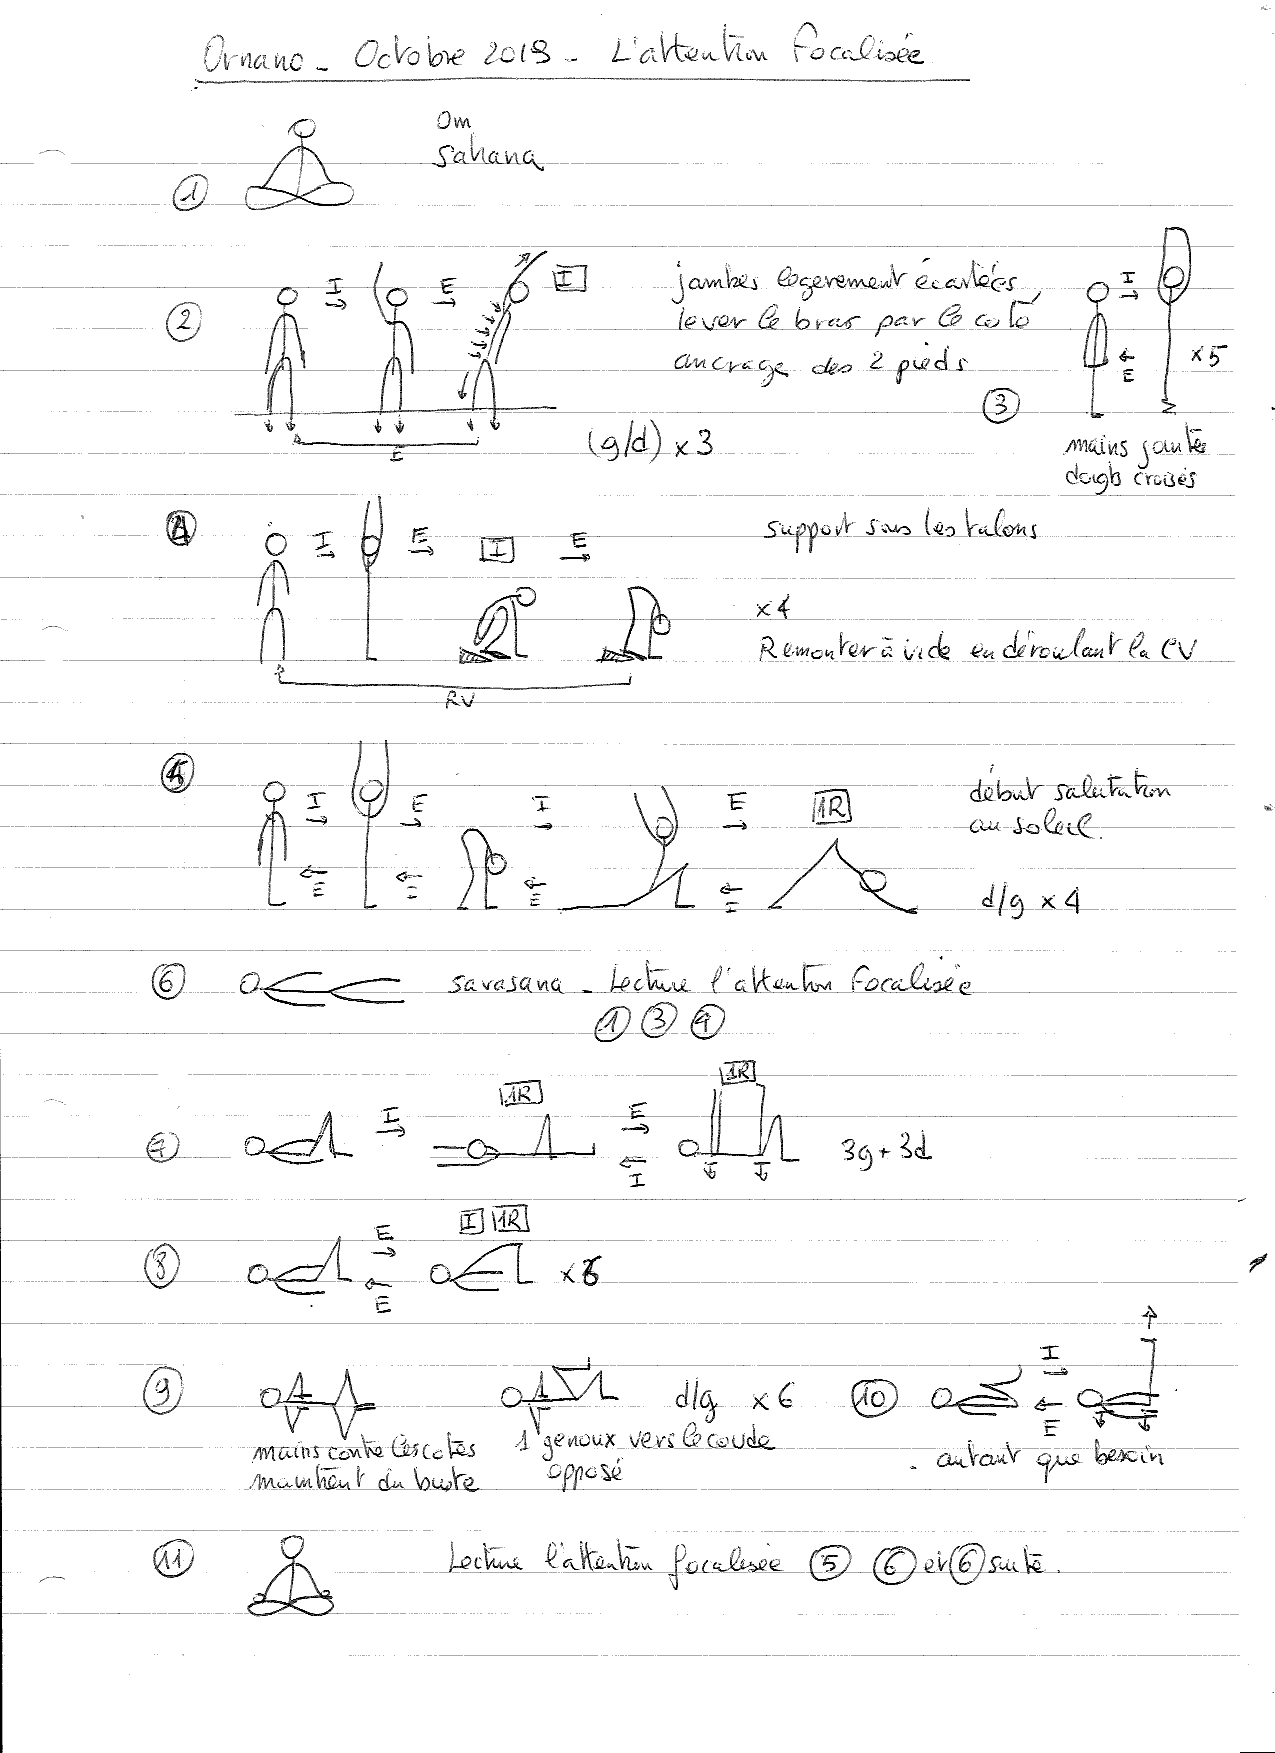 Ornano - Octobre 2019 - L'attention focalisée
Om
Sahana
1
2
I
E
I
jambes légèrement écartées,
lever le bras par le côté
ancrage des 2 pieds
E
(g/d) x 3
3
I
E
x 5
mains jointes
doigts croisés
4
I
E
I
E
support sous les talons
x 4
Remonter à vide en déroulant la CV
RV
5
I
E
I
E
1R
début salutation
au soleil.
E
I
E
I
d/g x 4
6
savasana - Lecture l'attention focalisée
1 3 4
7
I
1R
E
I
1R
3g + 3d
8
E
E
I 1R
x 6
9
mains contre les côtés
maintient du buste
1 genoux vers le coude
opposé
d/g x 6
10
I
E
. autant que besoin
11
Lecture l'attention focalisée 5 6 et 6 suite.